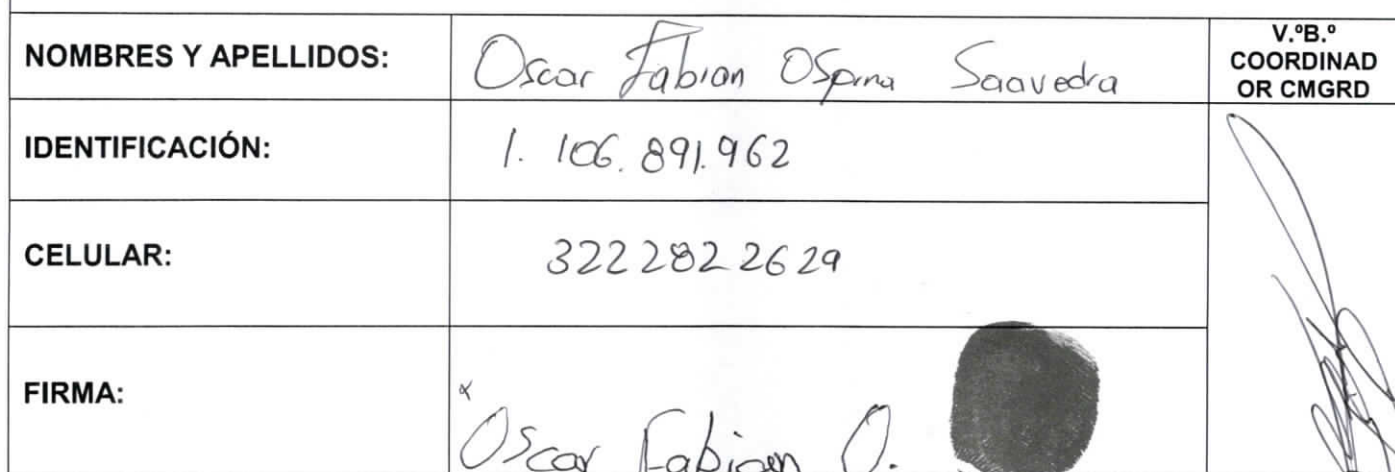 NOMBRES Y APELLIDOS: Oscar Fabian OSpina Saavedra
V.ºB.º
COORDINAD
OR CMGRD
IDENTIFICACIÓN: 1.106.891.962
CELULAR: 3222822629
FIRMA: x Oscar Fabian O.